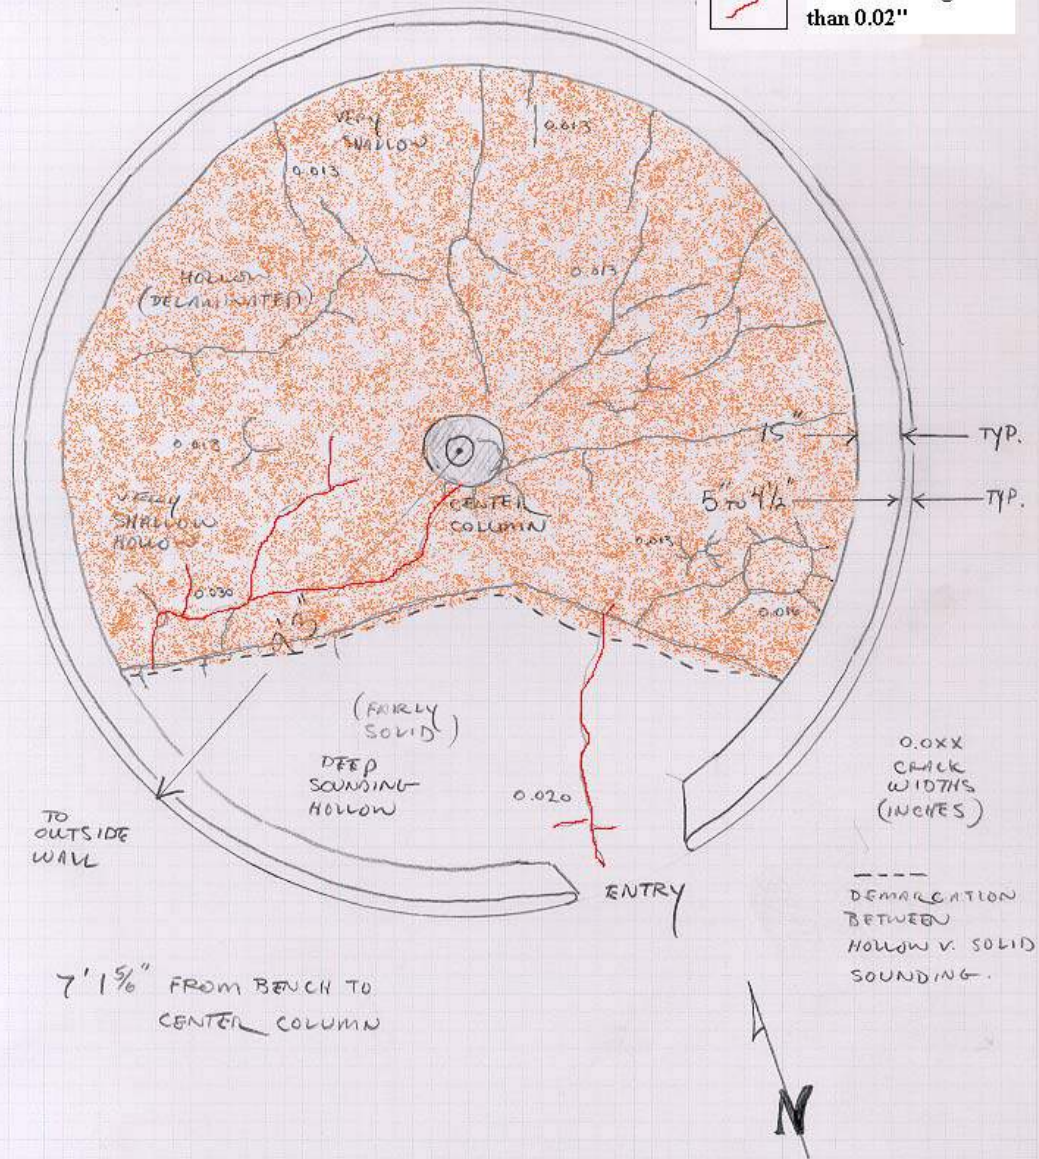 than 0.02"
VERY
SHALLOW
0.013
0.013
HOLLOW
(DELAMINATED)
0.013
0.013
15"
TYP.
5" TO 4½"
TYP.
CENTER
COLUMN
VERY
SHALLOW
HOLLOW
0.013
0.030
0.016
(FAIRLY
SOLID)
DEEP
SOUNDING
HOLLOW
0.020
0.0XX
CRACK
WIDTHS
(INCHES)
TO
OUTSIDE
WALL
ENTRY
DEMARCATION
BETWEEN
HOLLOW V. SOLID
SOUNDING.
7' 1 5/16" FROM BENCH TO
CENTER COLUMN
N